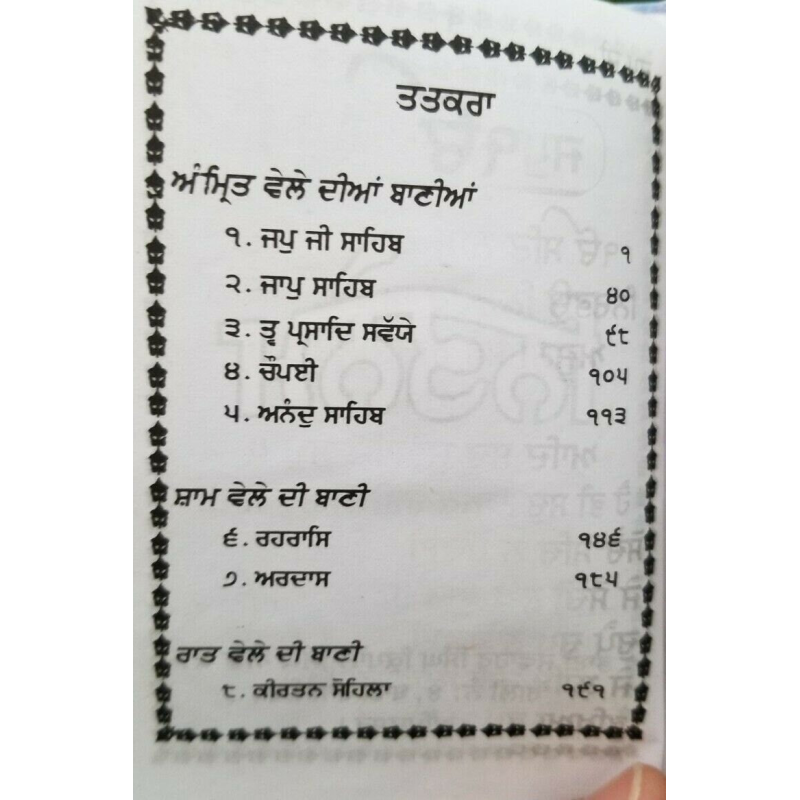 ਤਤਕਰਾ
ਅੰਮ੍ਰਿਤ ਵੇਲੇ ਦੀਆਂ ਬਾਣੀਆਂ
੧. ਜਪੁ ਜੀ ਸਾਹਿਬ ੧
੨. ਜਾਪੁ ਸਾਹਿਬ ੪੦
੩. ਤ੍ਵ ਪ੍ਰਸਾਦਿ ਸਵੱਯੇ ੯੮
੪. ਚੌਪਈ ੧੦੫
੫. ਅਨੰਦੁ ਸਾਹਿਬ ੧੧੩
ਸ਼ਾਮ ਵੇਲੇ ਦੀ ਬਾਣੀ
੬. ਰਹਰਾਸਿ ੧੪੬
੭. ਅਰਦਾਸ ੧੮੫
ਰਾਤ ਵੇਲੇ ਦੀ ਬਾਣੀ
੮. ਕੀਰਤਨ ਸੋਹਿਲਾ ੧੯੧